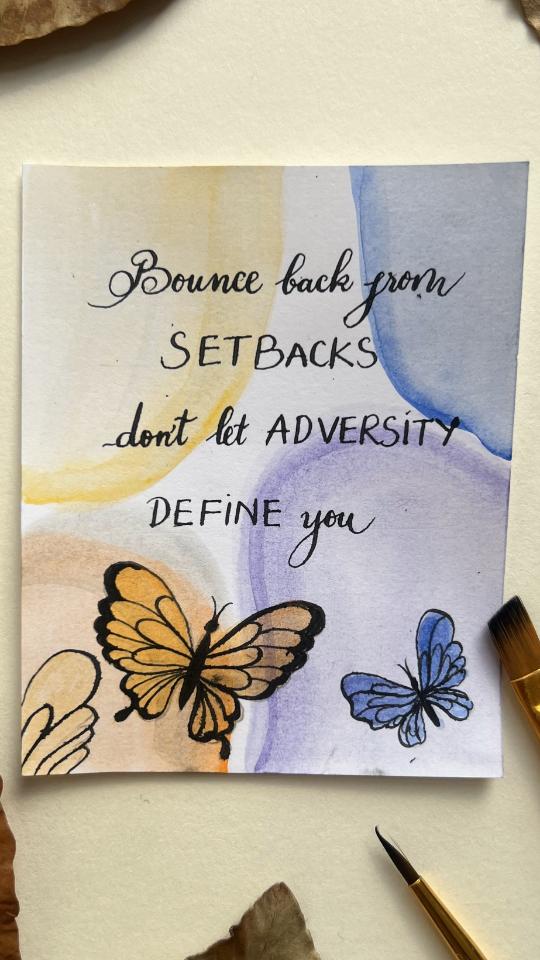 Bounce back from
SETBACKS
don't let ADVERSiTY
DEFiNE you